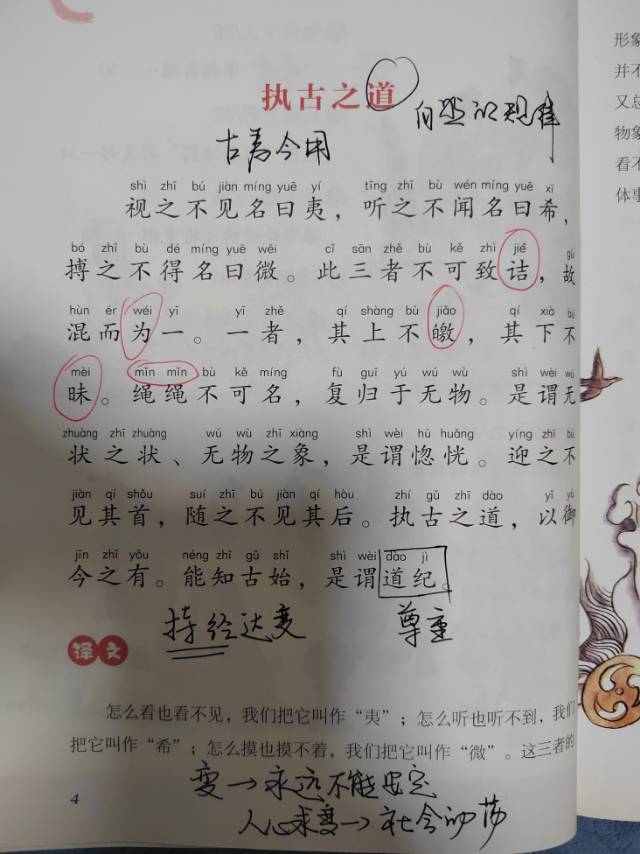 执古之道
自然的规律
古为今用
shì zhī bú jiàn míng yuē yí tīng zhī bù wén míng yuē xī
视之不见名曰夷，听之不闻名曰希，
bó zhī bù dé míng yuē wēi cǐ sān zhě bù kě zhì jié gù
搏之不得名曰微。此三者不可致诘，故
hùn ér wéi yī yī zhě qí shàng bù jiǎo qí xià bú
混而为一。一者，其上不皦，其下不
mèi mǐn mǐn bù kě míng fù guī yú wú wù shì wèi wú
昧。绳绳不可名，复归于无物。是谓无
zhuàng zhī zhuàng wú wù zhī xiàng shì wèi hū huǎng yíng zhī bú
状之状、无物之象，是谓惚恍。迎之不
jiàn qí shǒu suí zhī bú jiàn qí hòu zhí gǔ zhī dào yǐ yù
见其首，随之不见其后。执古之道，以御
jīn zhī yǒu néng zhī gǔ shǐ shì wèi dào jì
今之有。能知古始，是谓道纪。
持经达变 尊重
译文
怎么看也看不见，我们把它叫作“夷”；怎么听也听不到，我们
把它叫作“希”；怎么摸也摸不着，我们把它叫作“微”。这三者的
变→永远不能安定
4
人心求变→社会动荡
形象
并不
又总
物象
看不
体事